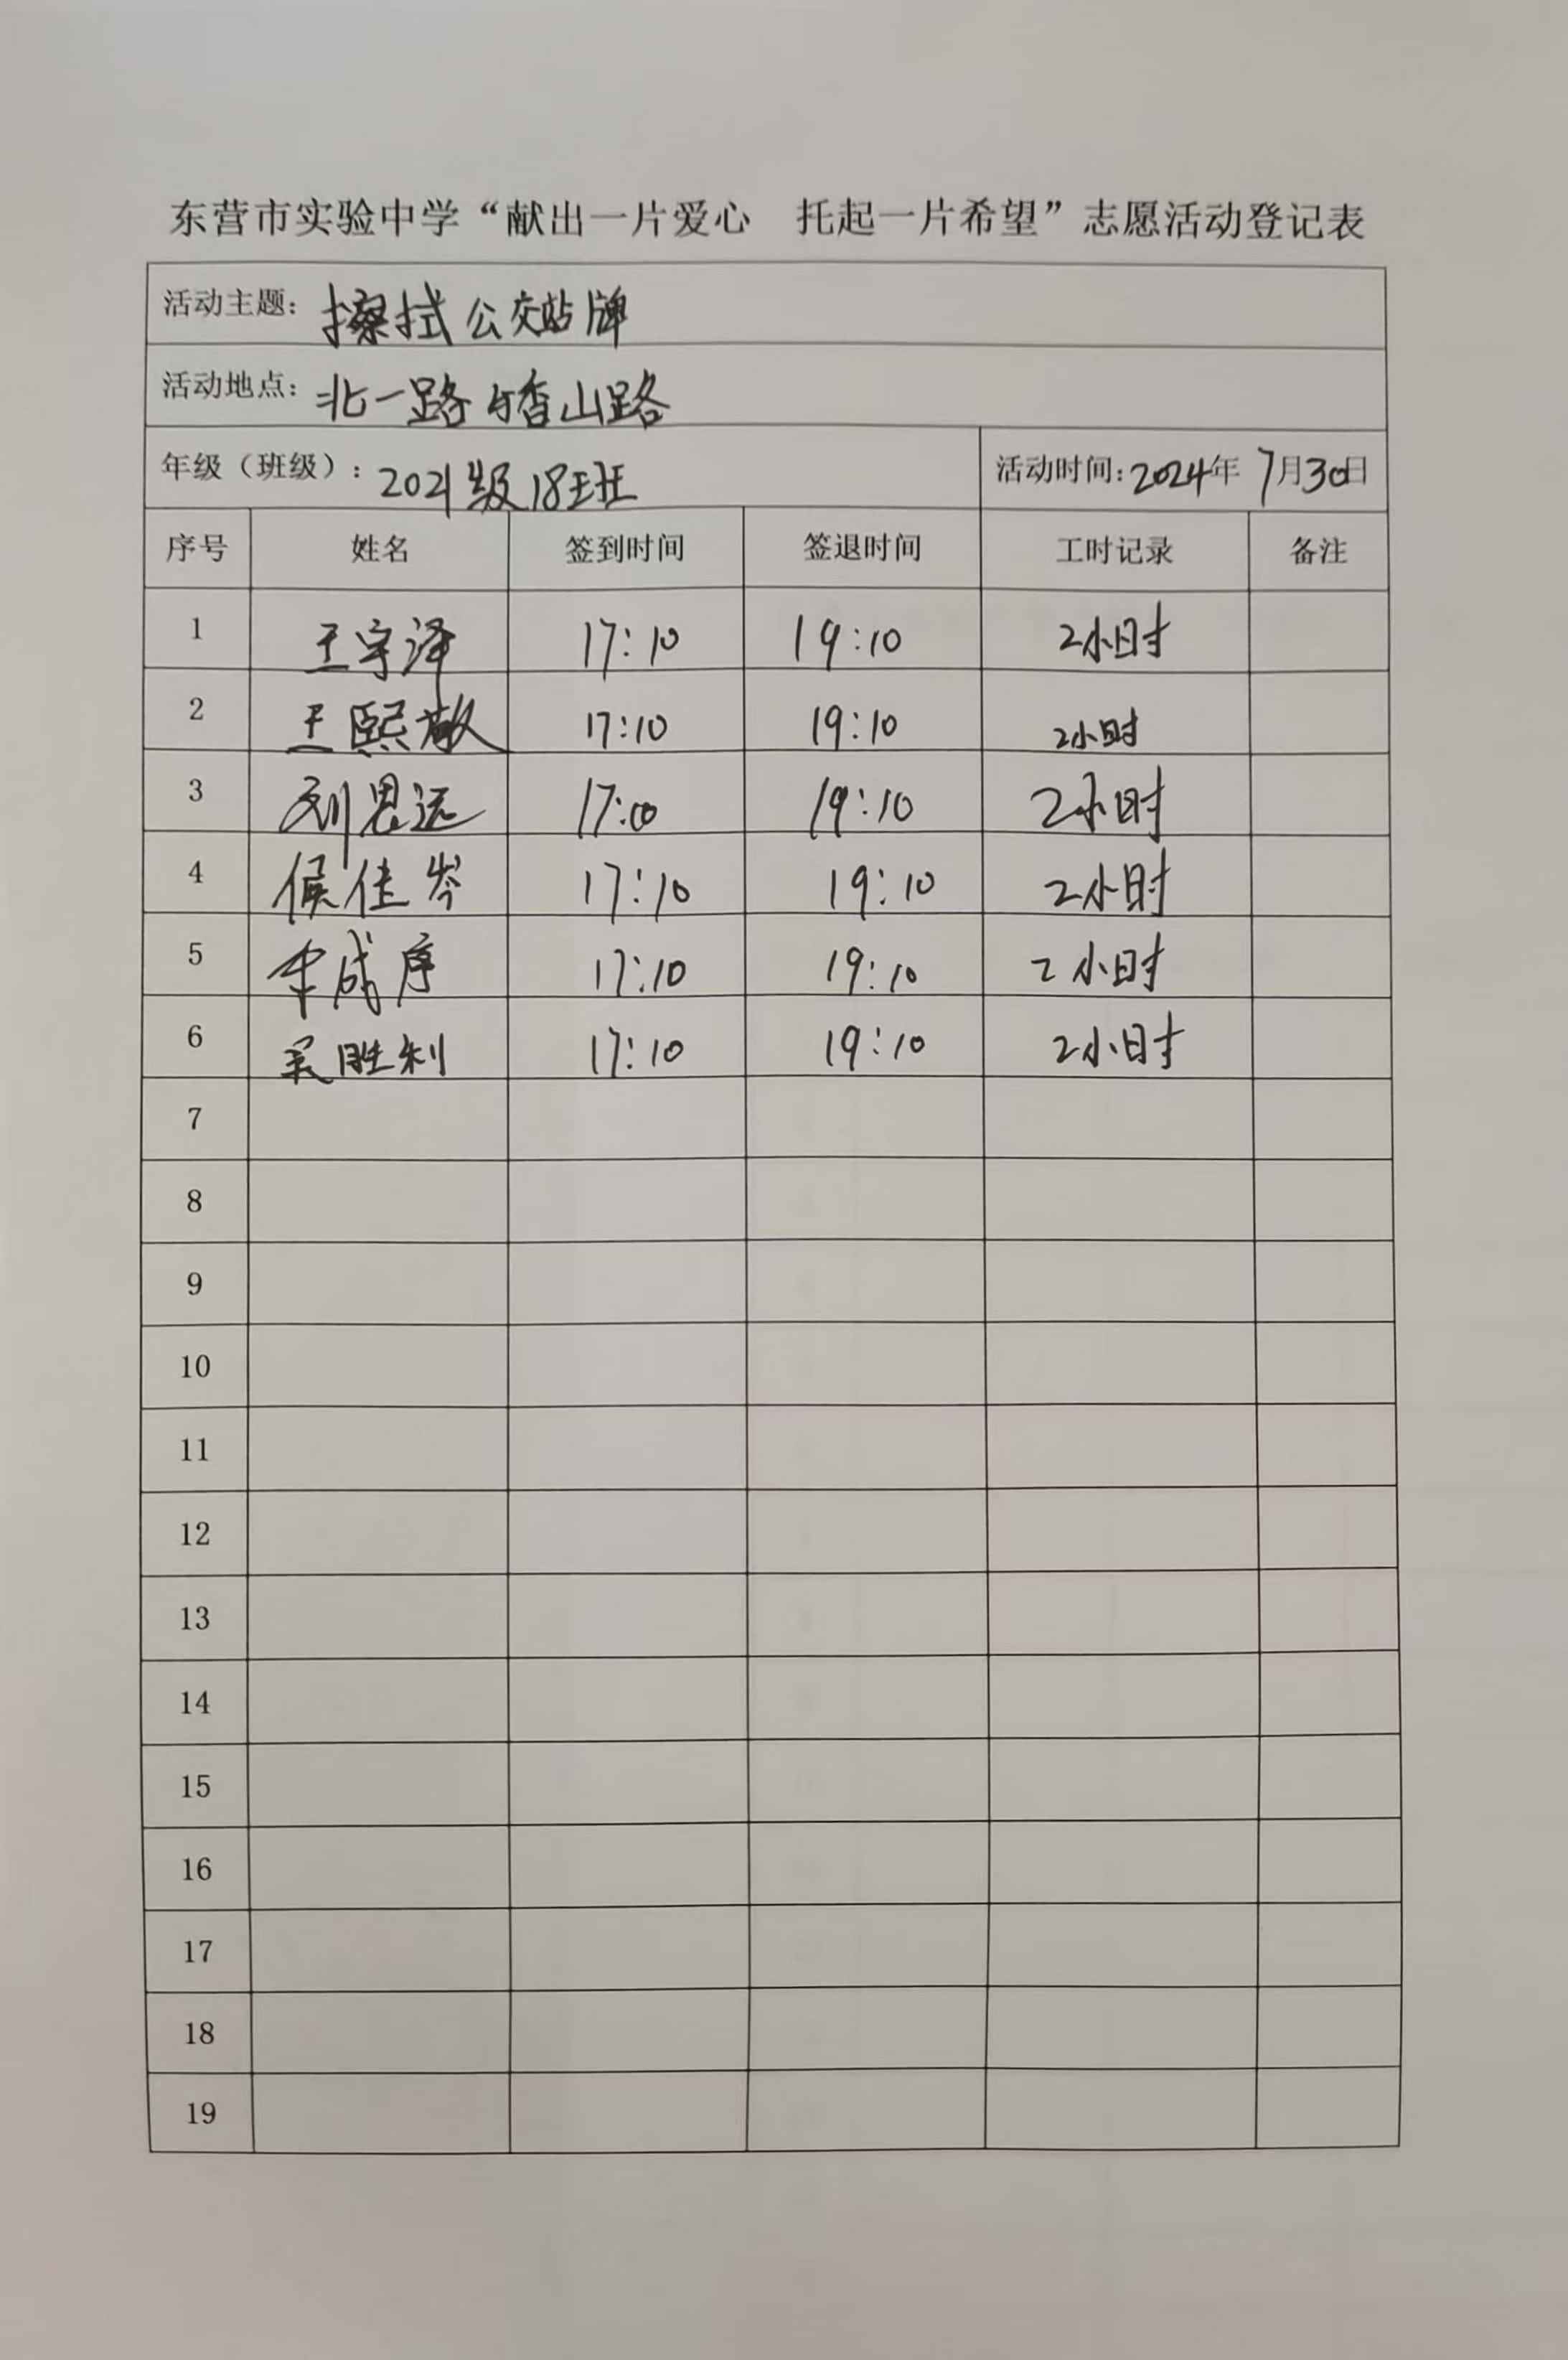 东营市实验中学“献出一片爱心 托起一片希望”志愿活动登记表
活动主题: 擦拭公交站牌
活动地点: 北一路与香山路
年级（班级）: 2021级18班 活动时间: 2024年 7月30日
序号 姓名 签到时间 签退时间 工时记录 备注
1 王宇泽 17:10 19:10 2小时
2 王熙敬 17:10 19:10 2小时
3 刘思远 17:10 19:10 2小时
4 侯佳岑 17:10 19:10 2小时
5 成序 17:10 19:10 2小时
6 吴胜利 17:10 19:10 2小时
7
8
9
10
11
12
13
14
15
16
17
18
19